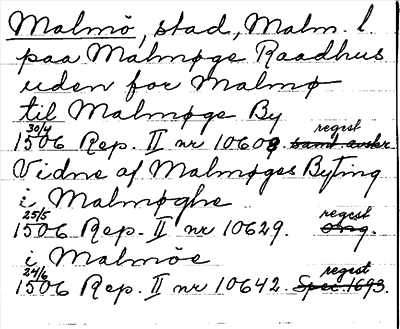 Malmö, stad, Malm. l.
paa Malmøge Raadhus
uden for Malmø
til Malmøge By
30/4 regest
1506 Rep. II nr 10609
Vidne af Malmøges Byting
i Malmøghe
25/5 regest
1506 Rep. II nr 10629. Orig.
i Malmöe
24/6 regest
1506 Rep. II nr 10642. Spec. 1693.